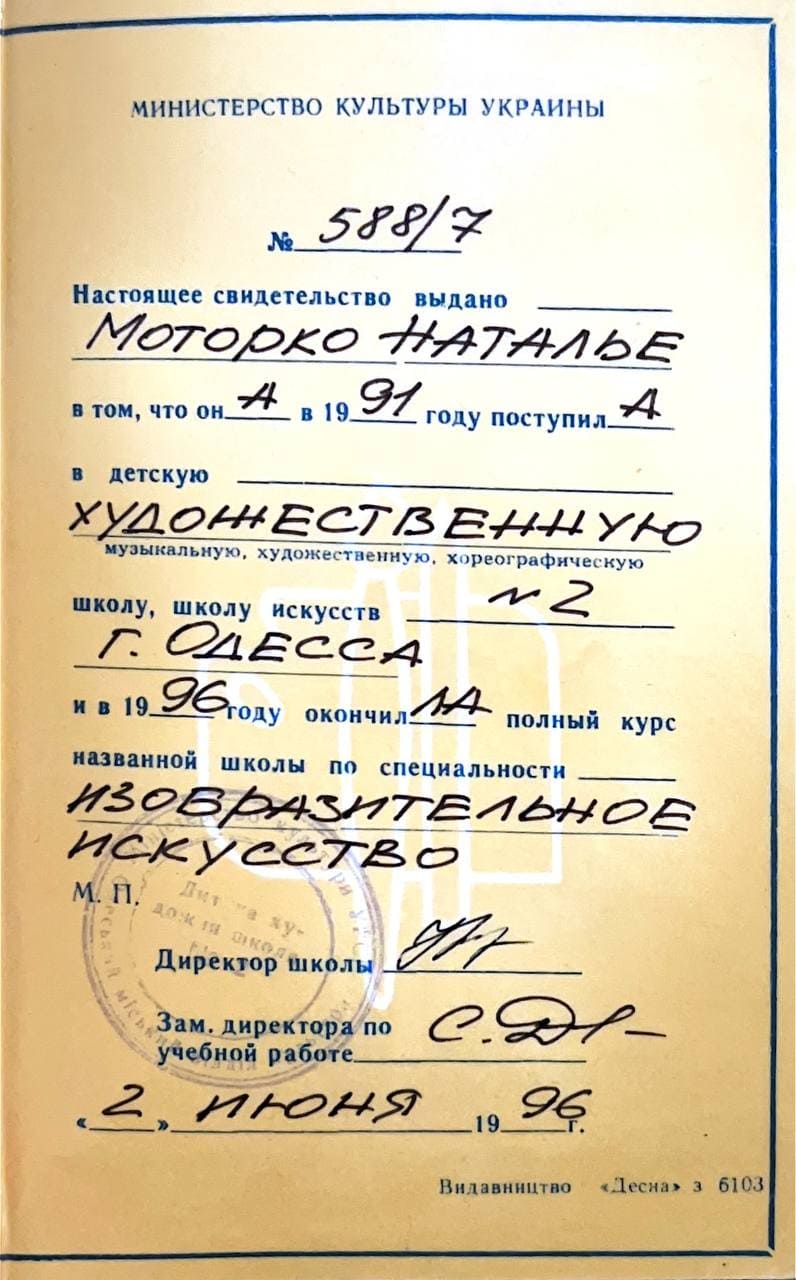 МИНИСТЕРСТВО КУЛЬТУРЫ УКРАИНЫ
№ 588/7
Настоящее свидетельство выдано
Моторко Наталье
в том, что он А в 19 91 году поступил А
в детскую
художественную
музыкальную, художественную, хореографическую
школу, школу искусств N2
г. Одесса
и в 19 96 году окончил ЛА полный курс
названной школы по специальности
изобразительное
искусство
М. П.
Директор школы
Зам. директора по
учебной работе
« 2 » июня 19 96 г.
Видавництво «Десна» з 6103